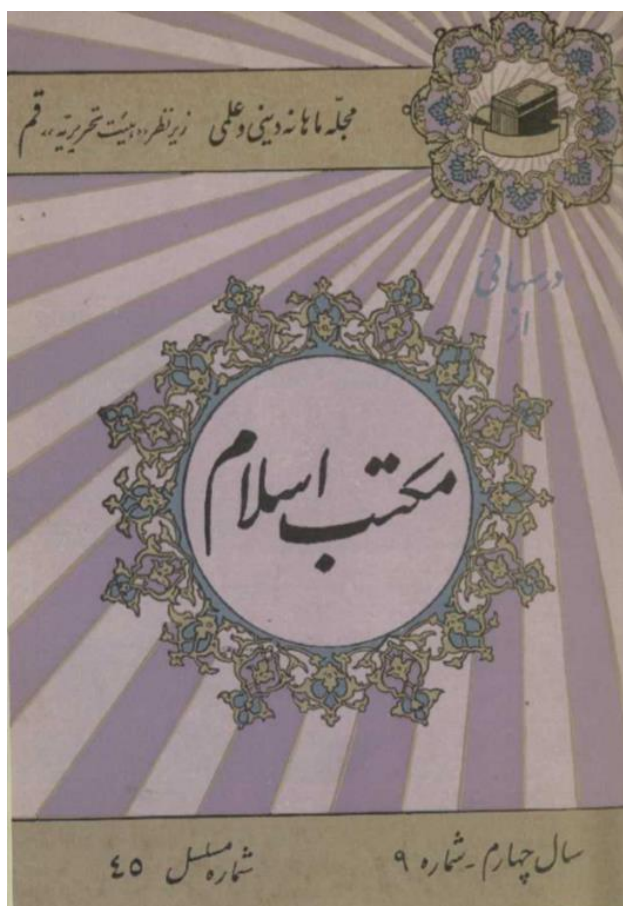 مجلّه ماهانه دینی و علمی زیر نظر «هیئت تحریریّه» قم
درسهائی
از
مکتب اسلام
سال چهارم - شماره ۹
شماره مسلسل ٤٥